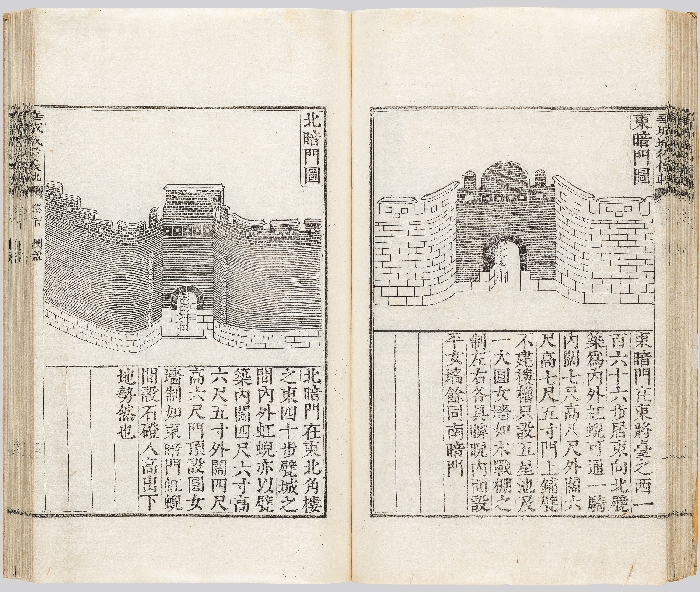 東暗門圖
東暗門在東將臺之西一
百六十六步居東向北甓
築爲內外虹蜺可通一騎
內闊七尺高八尺外闊六
尺高七尺五寸門上鋪甓
不建樓櫓只設五星池及
一大圓女墻如木戰棚之
制左右各具睥睨內面設
平女墻餘同南暗門
北暗門圖
北暗門在東北角樓
之東四十步甓城之
間內外虹蜺亦以甓
築內闊四尺六寸高
六尺五寸外闊四尺
高六尺門頂設圓女
墻制如東暗門虹蜺
間設石磴入高出下
地勢然也